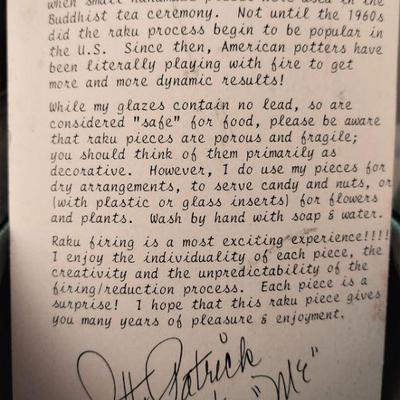 when small handmade pieces were used in the
Buddhist tea ceremony.  Not until the 1960s
did the raku process begin to be popular in
the U.S.  Since then, American potters have
been literally playing with fire to get
more and more dynamic results!
While my glazes contain no lead, so are
considered "safe" for food, please be aware
that raku pieces are porous and fragile;
you should think of them primarily as
decorative.  However, I do use my pieces for
dry arrangements, to serve candy and nuts, or
(with plastic or glass inserts) for flowers
and plants.  Wash by hand with soap & water.
Raku firing is a most exciting experience!!!!
I enjoy the individuality of each piece, the
creativity and the unpredictability of the
firing/reduction process.  Each piece is a
surprise!  I hope that this raku piece gives
you many years of pleasure & enjoyment.
Patrick
"Mc"